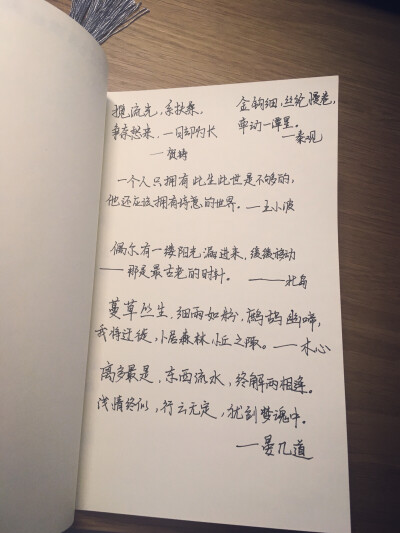 揽流光,系扶桑,
争奈愁来,一日却为长
——贺铸
金钩细,丝纶慢卷,
牵动一潭星。
——秦观
一个人只拥有此生此世是不够的,
他还应该拥有诗意的世界。——王小波
偶尔有一缕阳光漏进来,缓缓移动
——那是最古老的时针。——北岛
蔓草丛生,细雨如粉,鹧鸪幽啼,
我将迁徙,卜居森林小丘之陬。——木心
离多最是,东西流水,终解两相逢。
浅情终似,行云无定,犹到梦魂中。
——晏几道